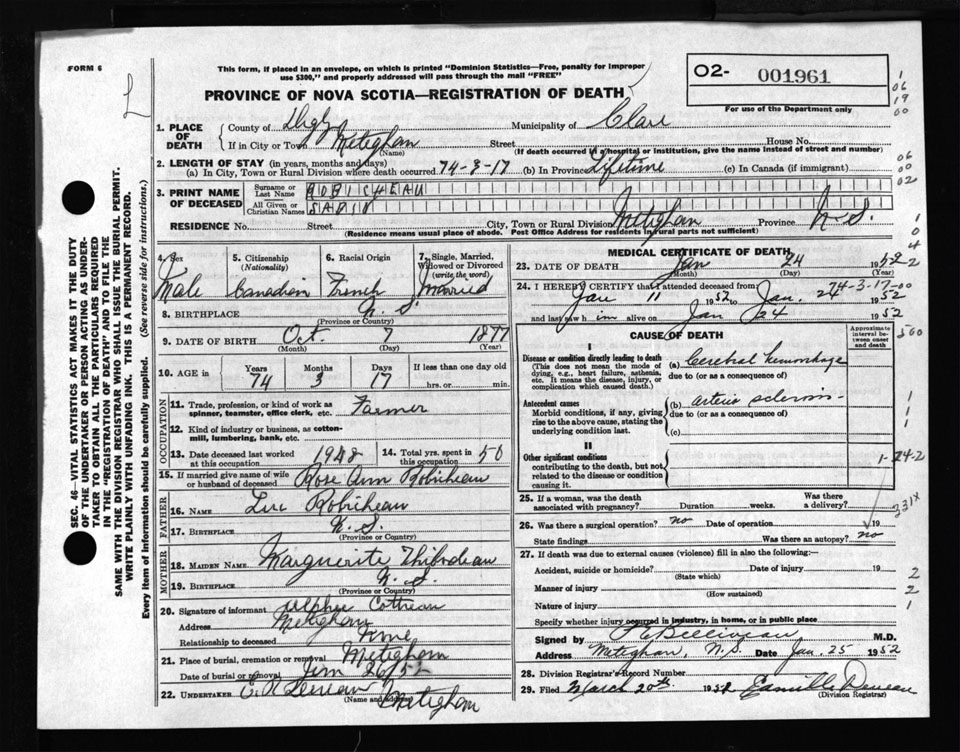 FORM 6
This form, if placed in an envelope, on which is printed "Dominion Statistics—Free, penalty for improper
use $300," and properly addressed will pass through the mail "FREE"
PROVINCE OF NOVA SCOTIA—REGISTRATION OF DEATH
O2- 001961
For use of the Department only
1. PLACE OF DEATH
County of Digby Municipality of Clare
If in City or Town Meteghan Street House No.
(Name) (If death occurred in a hospital or institution, give the name instead of street and number)
2. LENGTH OF STAY (in years, months and days)
(a) In City, Town or Rural Division where death occurred 74-3-17 (b) In Province Lifetime (c) In Canada (if immigrant)
3. PRINT NAME OF DECEASED
Surname or Last Name ROBICHEAU
All Given or Christian Names SABIN
RESIDENCE No. Street City, Town or Rural Division Meteghan Province N.S.
(Residence means usual place of abode. Post Office Address for residents in rural parts not sufficient)
4. Sex Male
5. Citizenship (Nationality) Canadian
6. Racial Origin French
7. Single, Married, Widowed or Divorced (write the word) Married
8. BIRTHPLACE N.S.
(Province or Country)
9. DATE OF BIRTH Oct. 7 1877
(Month) (Day) (Year)
10. AGE in Years 74 Months 3 Days 17 If less than one day old hrs. or min.
OCCUPATION
11. Trade, profession, or kind of work as spinner, teamster, office clerk, etc. Farmer
12. Kind of industry or business, as cotton-mill, lumbering, bank, etc.
13. Date deceased last worked at this occupation 1948 14. Total yrs. spent in this occupation 50
15. If married give name of wife or husband of deceased Rose Ann Robicheau
FATHER
16. NAME Luc Robicheau
17. BIRTHPLACE N.S.
(Province or Country)
MOTHER
18. MAIDEN NAME Marguerite Thibodeau
19. BIRTHPLACE N.S.
(Province or Country)
20. Signature of informant Alphee Cottreau
Address Meteghan
Relationship to deceased None
21. Place of burial, cremation or removal Meteghan
Date of burial or removal Jan 26/52
22. UNDERTAKER Meteghan
(Name and address)
MEDICAL CERTIFICATE OF DEATH
23. DATE OF DEATH Jan 24 1952
(Month) (Day) (Year)
24. I HEREBY CERTIFY that I attended deceased from 74-3-17-00
Jan 11 1952 to Jan. 24 1952
and last saw him alive on Jan 24 1952
CAUSE OF DEATH
Approximate interval between onset and death
I
Disease or condition directly leading to death (a) Cerebral hemorrhage
(This does not mean the mode of dying, e.g., heart failure, asthenia, etc. It means the disease, injury, or complication which caused death.)
due to (or as a consequence of)
Antecedent causes (b) arterio sclerosis
Morbid conditions, if any, giving rise to the above cause, stating the underlying condition last.
due to (or as a consequence of)
(c)
II
Other significant conditions
contributing to the death, but not related to the disease or condition causing it.
1-24-2
25. If a woman, was the death associated with pregnancy? Duration weeks. Was there a delivery?
331X
26. Was there a surgical operation? no Date of operation 19
State findings Was there an autopsy? no
27. If death was due to external causes (violence) fill in also the following:—
Accident, suicide or homicide? Date of injury 19
(State which)
Manner of injury
(How sustained)
Nature of injury
Specify whether injury occurred in industry, in home, or in public place
Signed by P E Belliveau M.D.
Address Meteghan, N.S. Date Jan. 25 1952
28. Division Registrar's Record Number
29. Filed March 20th 1952
(Division Registrar)
SEC. 46—VITAL STATISTICS ACT MAKES IT THE DUTY
OF THE UNDERTAKER OR PERSON ACTING AS UNDER-
TAKER TO OBTAIN ALL THE PARTICULARS REQUIRED
IN THE "REGISTRATION OF DEATH" AND TO FILE THE
SAME WITH THE DIVISION REGISTRAR WHO SHALL ISSUE THE BURIAL PERMIT.
WRITE PLAINLY WITH UNFADING INK. THIS IS A PERMANENT RECORD.
Every item of information should be carefully supplied. (See reverse side for instructions.)